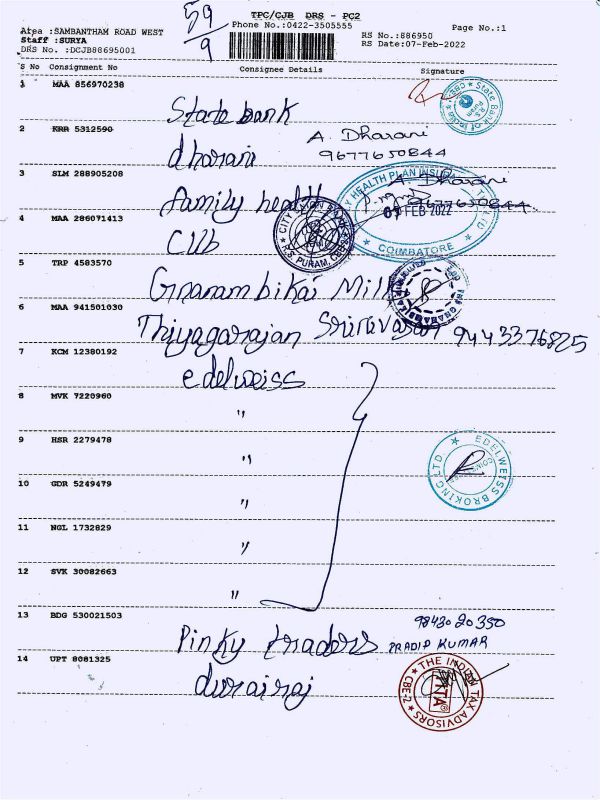 59/9
TPC/CJB DRS - PC2
Area :SAMBANTHAM ROAD WEST
Phone No.:0422-3505555
Page No.:1
Staff :SURYA
RS No.:886950
DRS No. :DCJB88695001
RS Date:07-Feb-2022
S No Consignment No Consignee Details Signature
1 MAA 856970238
State bank
State Bank of India
2 KRR 5312590
A. Dharani
dharani
9677650844
3 SLM 288905208
family health
A. Dharani
9677650844
FAMILY HEALTH PLAN INSURANCE TPA LTD
09 FEB 2022
COIMBATORE
4 MAA 286071413
CUb
CITY UNION BANK
R.S. PURAM, CBE-2
5 TRP 4583570
Gnanambikai Milk
6 MAA 941501030
Thiyagarajan Srinivasan 9443376825
7 KCM 12380192
edelweiss
8 MVK 7220960
"
9 HSR 2279478
"
EDELWEISS BROKING LTD.
10 GDR 5249479
"
11 NGL 1732829
"
12 SVK 30082663
"
13 BDG 530021503
9843020350
Pinky traders PRADIP KUMAR
14 UPT 8081325
durairaj
THE INDIAN TAX ADVISORS
ITA
CBE-2